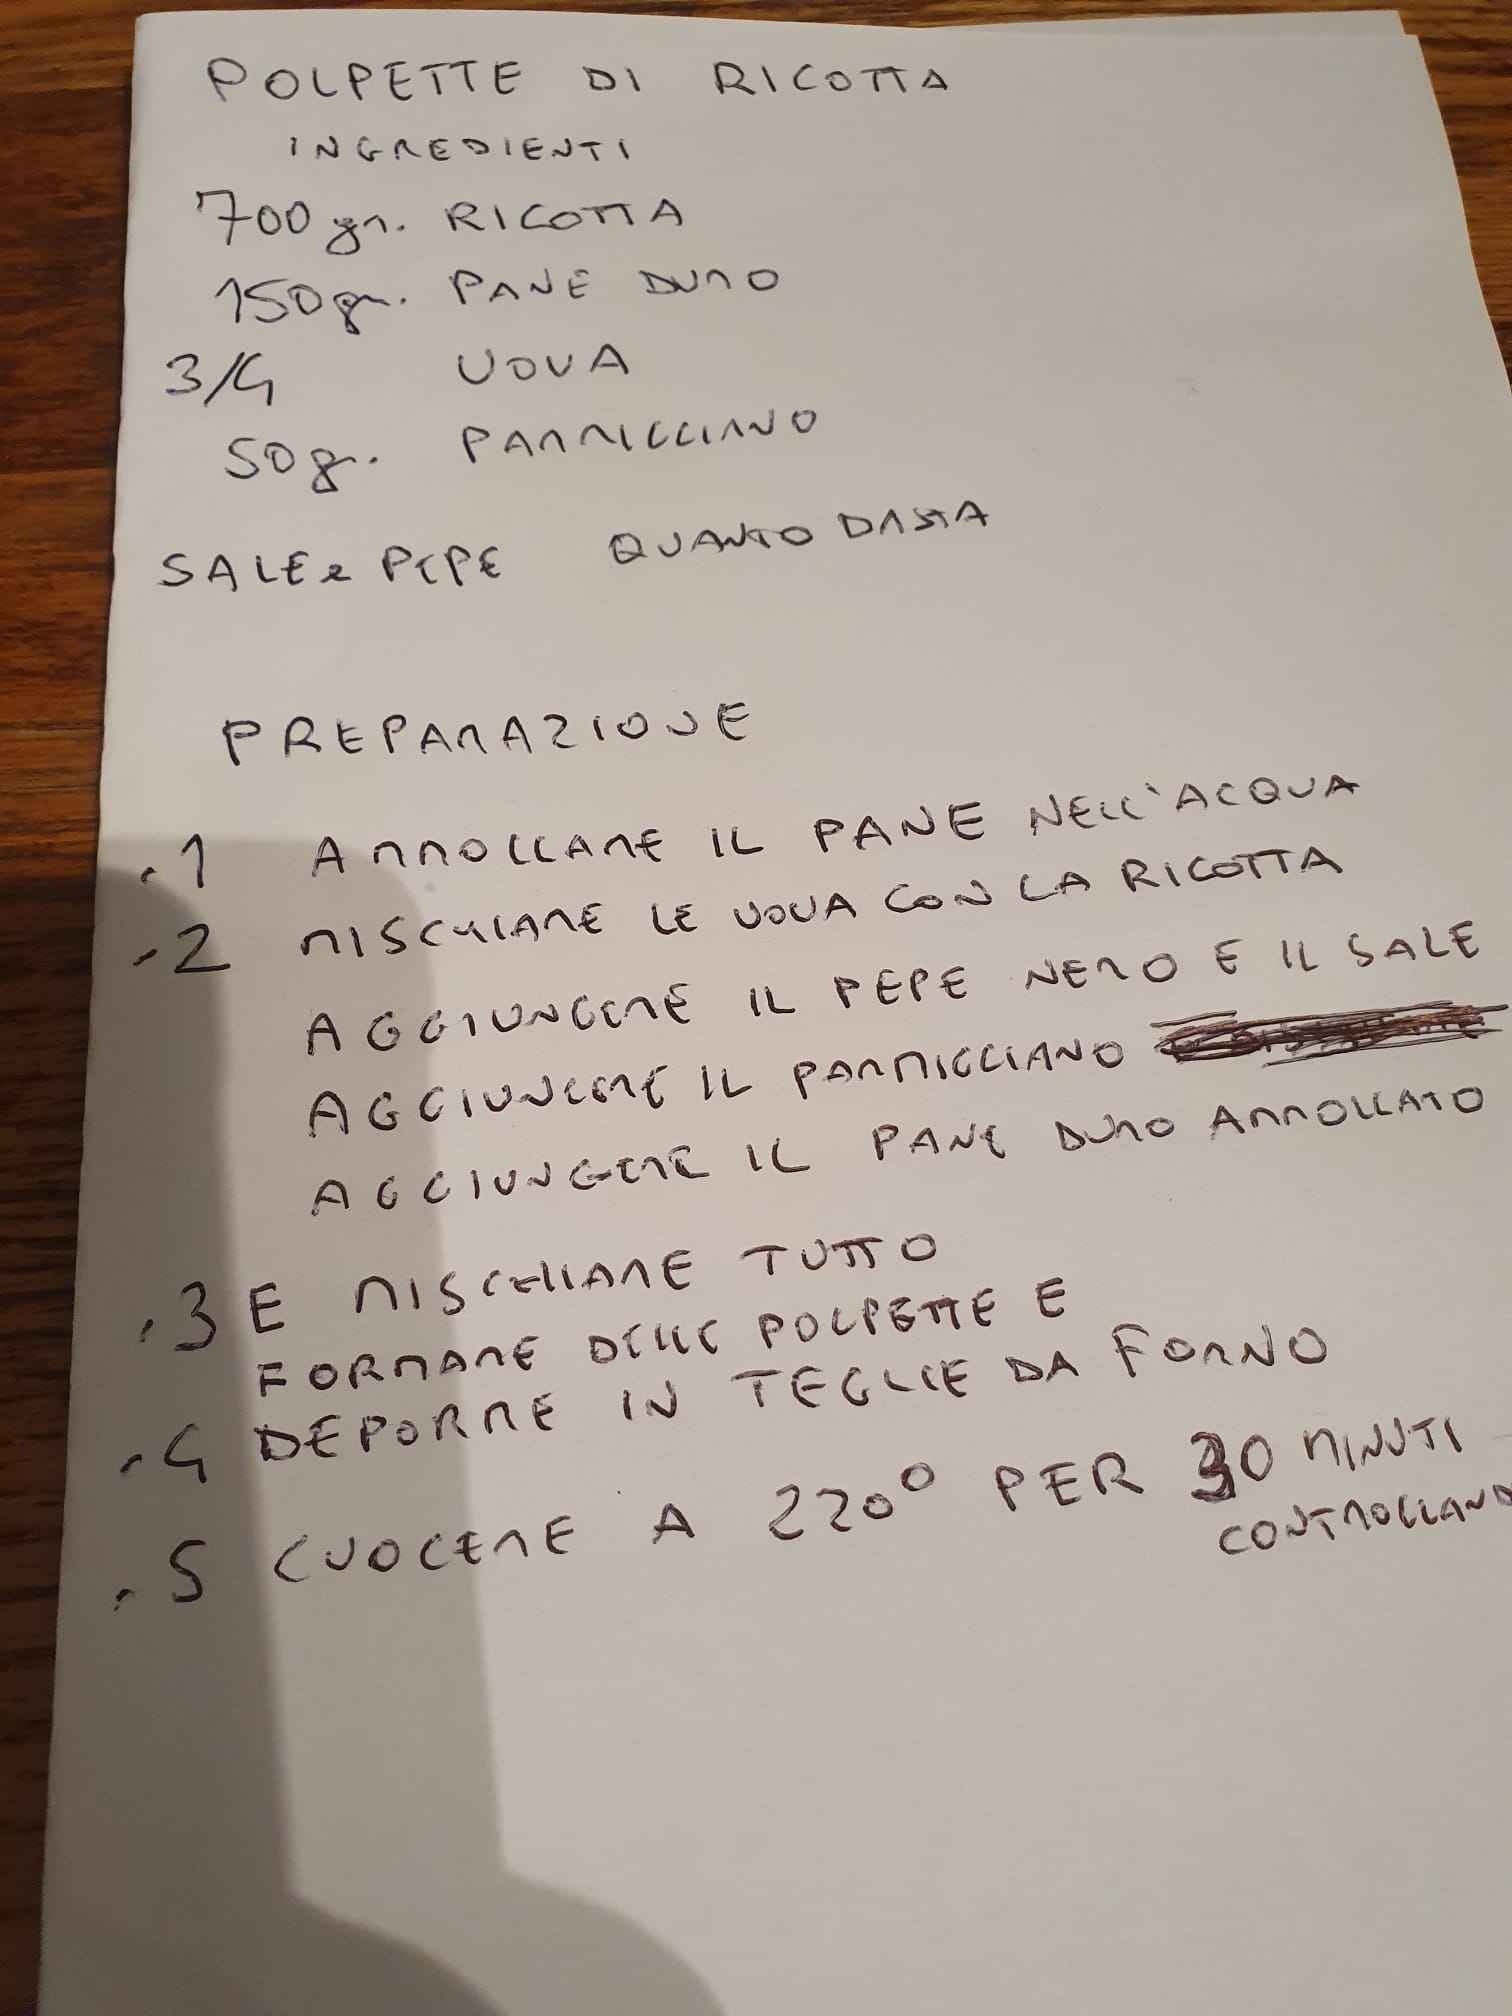 POLPETTE DI RICOTTA
INGREDIENTI
700 gr. RICOTTA
150 gr. PANE DURO
3/4 UOVA
50 gr. PARMIGGIANO
SALE e PEPE QUANTO BASTA
PREPARAZIONE
.1 AMMOLLARE IL PANE NELL'ACQUA
.2 MISCHIARE LE UOVA CON LA RICOTTA
AGGIUNGERE IL PEPE NERO E IL SALE
AGGIUNGERE IL PARMIGGIANO
AGGIUNGERE IL PANE DURO AMMOLLATO
.3 E MISCHIARE TUTTO
FORMARE DELLE POLPETTE E
.4 DEPORRE IN TEGLIE DA FORNO
.5 CUOCERE A 220° PER 30 MINUTI
CONTROLLANDO